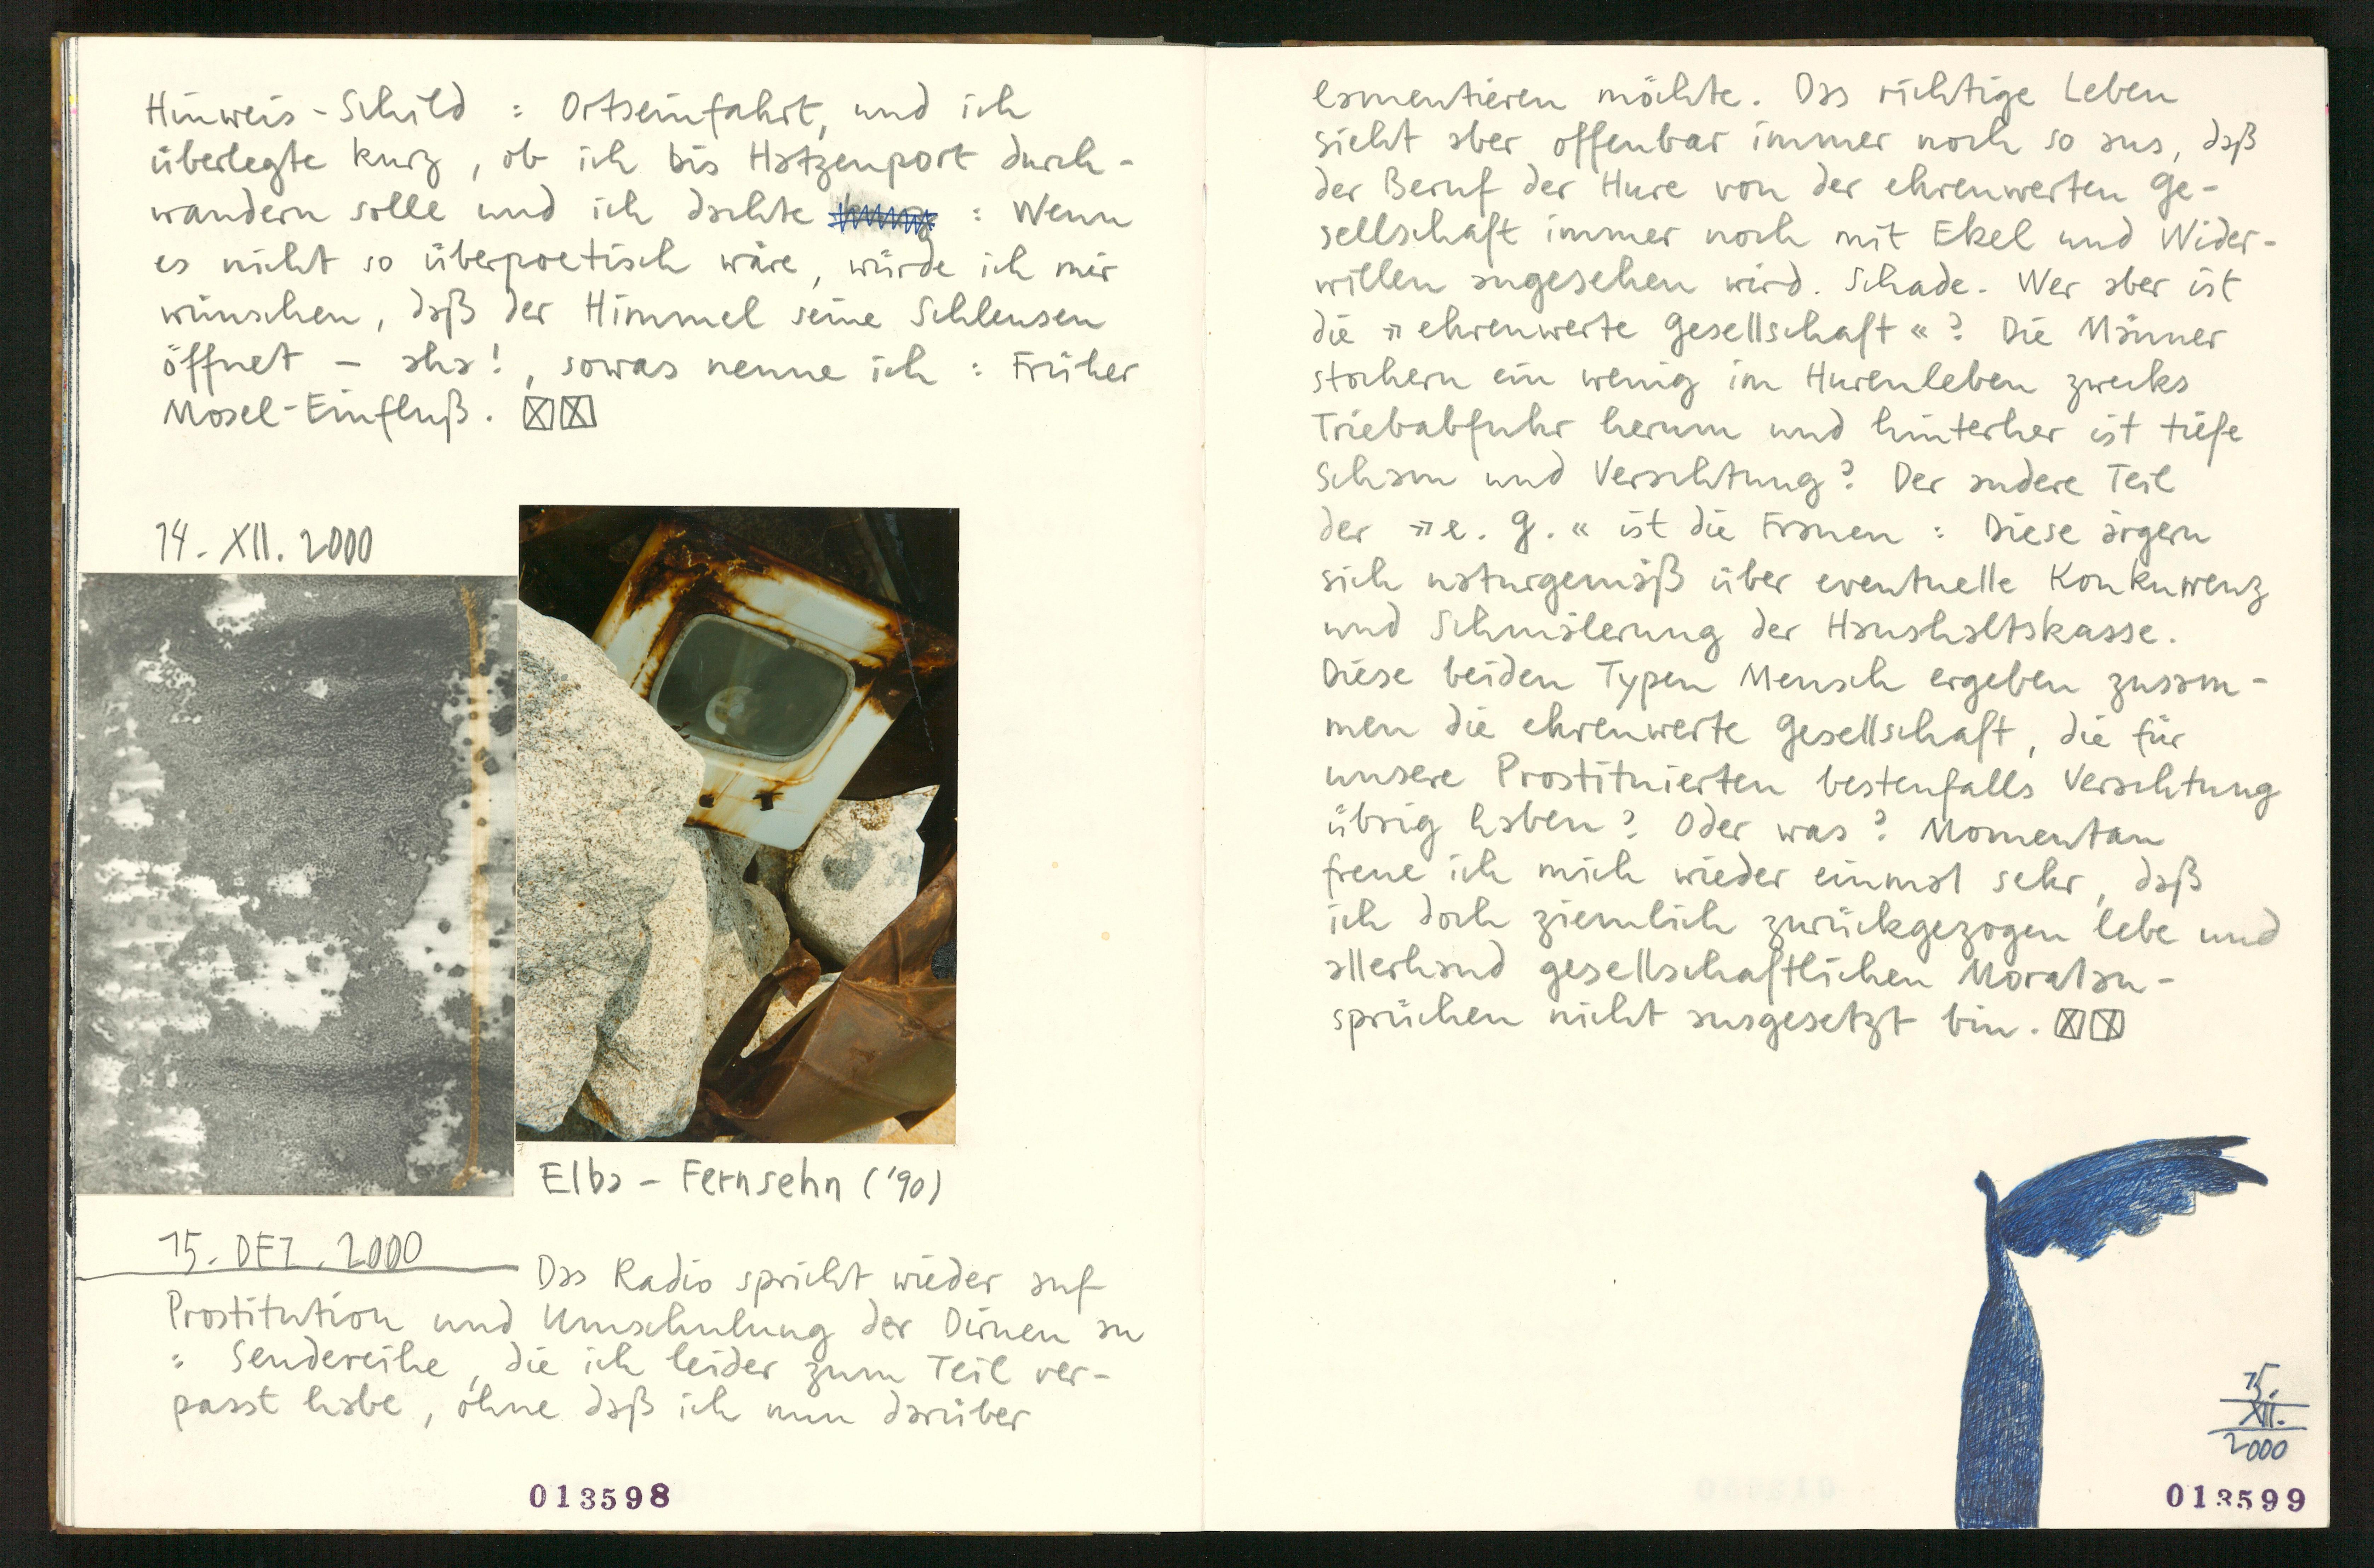 Hinweis-Schild : Ortseinfahrt, und ich
überlegte kurz, ob ich bis Hatzenport durch-
wandern solle und ich dachte : Wenn
es nicht so überpoetisch wäre, würde ich mir
wünschen, daß der Himmel seine Schleusen
öffnet – aha!, sowas nenne ich : Früher
Mosel-Einfluß.
14. XII. 2000
Elba – Fernsehn ('90)
15. DEZ. 2000
Das Radio spricht wieder auf
Prostitution und Umschulung der Dirnen an
: Sendereihe, die ich leider zum Teil ver-
passt habe, ohne daß ich nun darüber
013598
lamentieren möchte. Das richtige Leben
sieht aber offenbar immer noch so aus, daß
der Beruf der Hure von der ehrenwerten Ge-
sellschaft immer noch mit Ekel und Wider-
willen angesehen wird. Schade. Wer aber ist
die »ehrenwerte Gesellschaft«? Die Männer
stochern ein wenig im Hurenleben zwecks
Triebabfuhr herum und hinterher ist tiefe
Scham und Verachtung? Der andere Teil
der »e. G.« ist die Frauen : Diese ärgern
sich naturgemäß über eventuelle Konkurrenz
und Schmälerung der Haushaltskasse.
Diese beiden Typen Mensch ergeben zusam-
men die ehrenwerte Gesellschaft, die für
unsere Prostituierten bestenfalls Verachtung
übrig haben? Oder was? Momentan
freue ich mich wieder einmal sehr, daß
ich doch ziemlich zurückgezogen lebe und
allerhand gesellschaftlichen Moralan-
sprüchen nicht ausgesetzt bin.
15.
XII.
2000
013599